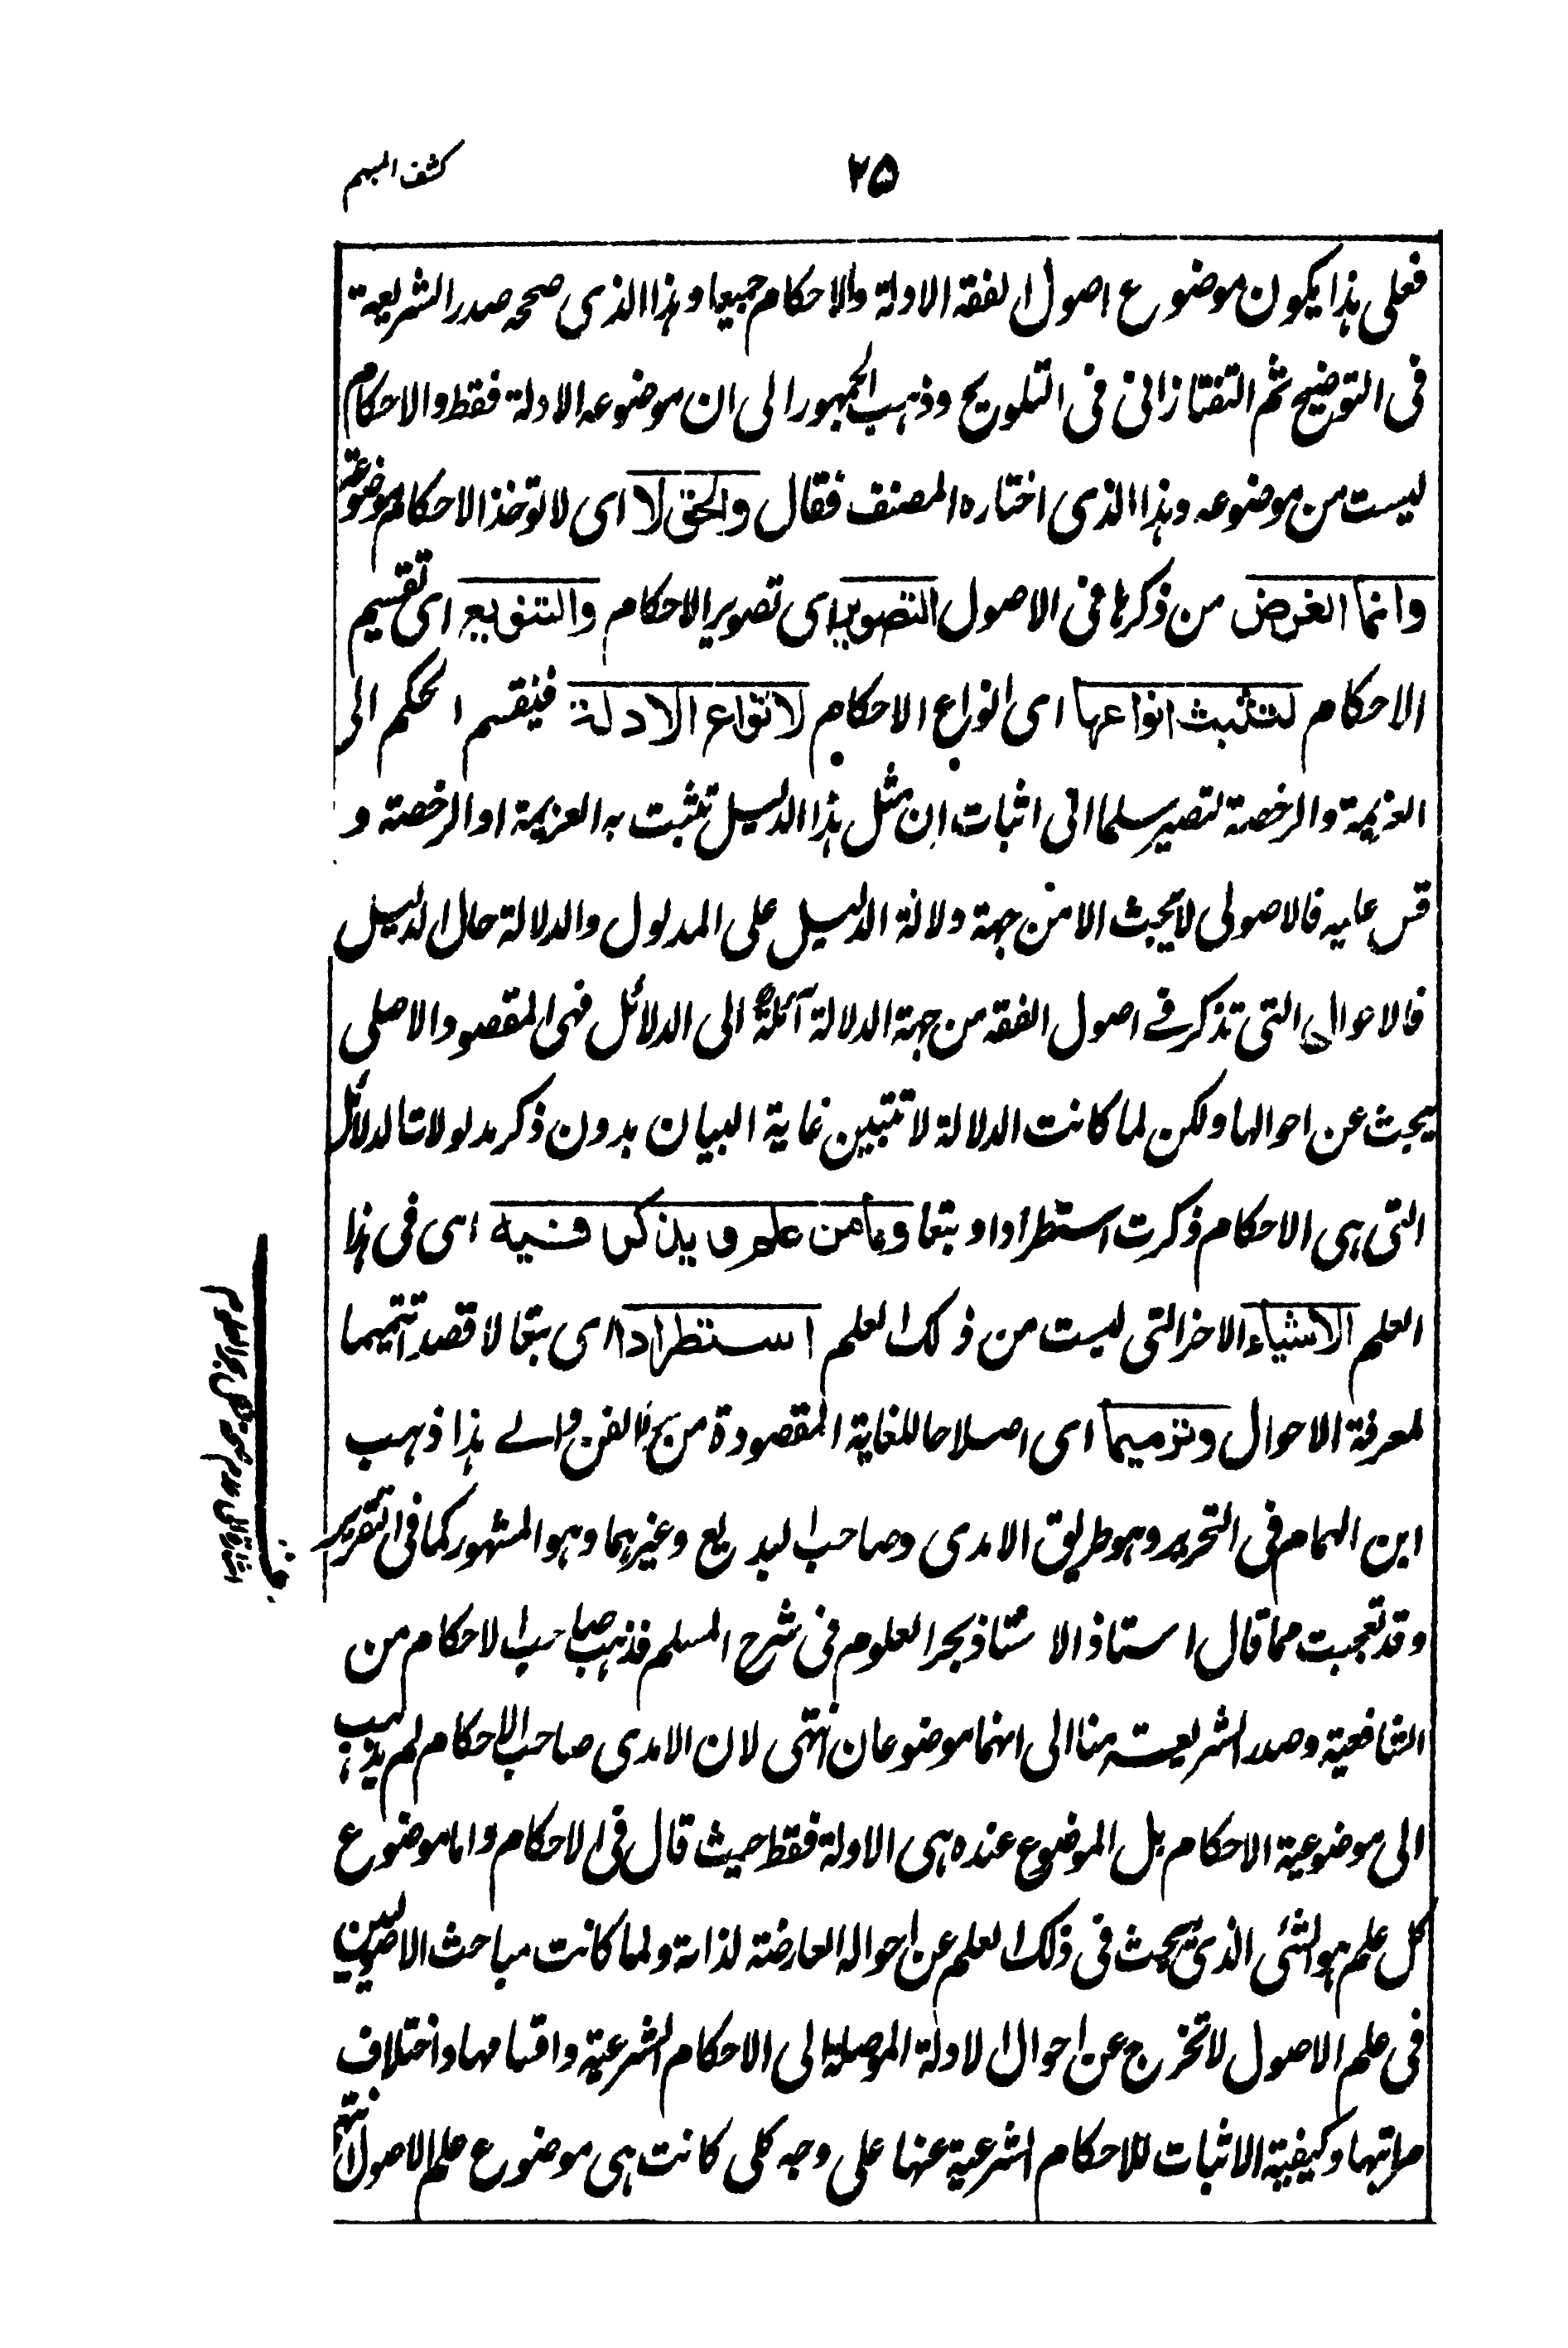 كشف المبهم
٢٥
فعلى هذا يكون موضوع اصول الفقه الادلة والاحكام جميعا وهذا الذى صححه صدر الشريعة
فى التوضيح ثم التفتازانى فى التلويح وذهب الجمهور الى ان موضوعه الادلة فقط والاحكام
ليست من موضوعه وهذا الذى اختاره المصنف فقال والحق لا اى لا توخذ الاحكام موضوعة
وانما الغرض من ذكرها فى الاصول التصوير اى تصوير الاحكام والتنويع اى تقسيم
الاحكام لتثبت انواعها اى انواع الاحكام لانواع الادلة فينقسم الحكم الى
العزيمة والرخصة لتصير سلما الى اثبات ان مثل هذا الدليل تثبت به العزيمة او الرخصة و
قس عليه فالاصولى لا يبحث الا من جهة دلالة الدليل على المدلول والدلالة حال الدليل
فالاحوال التى تذكر فى اصول الفقه من جهة الدلالة آئلة الى الدلائل فهى المقصود الاصلى
يبحث عن احوالها ولكن لما كانت الدلالة لا تتبين غاية البيان بدون ذكر مدلولات الدلائل
التى هى الاحكام ذكرت استطرادا و تبعا وما من علم و يذكر فيه اى فى هذا
العلم الاشياء الاخر التى ليست من ذلك العلم استطرادا اى تبعا لا قصدا تتميما
لمعرفة الاحوال وترميما اى اصلاحا للغاية المقصودة من هذا الفن والى هذا ذهب
ابن الهمام فى التحرير وهو طريق الامدى وصاحب البديع وغيرهما وهو المشهور كما فى التقرير
وقد تعجبت مما قال استاذ الاستاذ بحر العلوم فى شرح المسلم فذهب صاحب الاحكام من
الشافعية وصدر الشريعة منا الى انهما موضوعان انتهى لان الامدى صاحب الاحكام لم يذهب
الى موضوعية الاحكام بل الموضوع عنده هى الادلة فقط حيث قال فى الاحكام واما موضوع
كل علم هو الشئى الذى يبحث فى ذلك العلم عن احواله العارضة لذاته ولما كانت مباحث الاصوليين
فى علم الاصول لا تخرج عن احوال الادلة الموصلة الى الاحكام الشرعية واقسامها واختلاف
مراتبها وكيفية الاثبات للاحكام الشرعية عنها على وجه كلى كانت هى موضوع علم الاصول انتهى